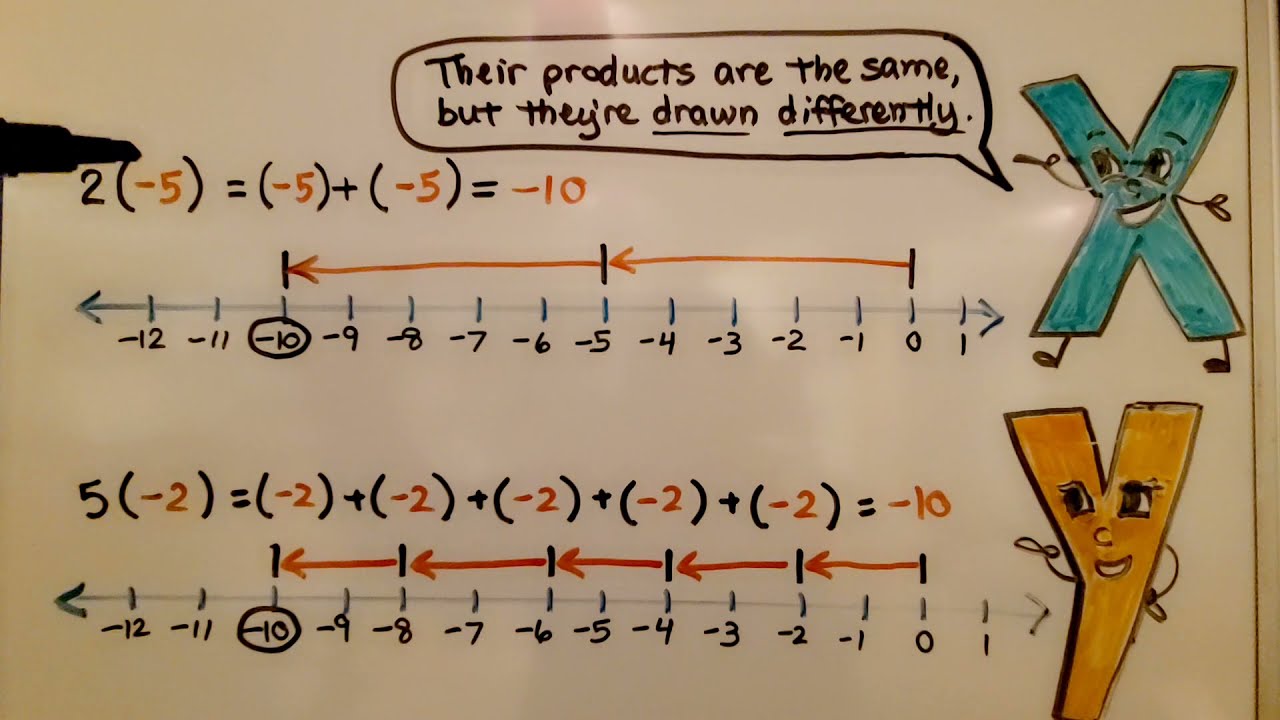 Their products are the same,
but they're drawn differently.
2(-5) = (-5)+(-5) = -10
-12 -11 -10 -9 -8 -7 -6 -5 -4 -3 -2 -1 0 1
5(-2) =(-2)+(-2)+(-2)+(-2)+(-2) = -10
-12 -11 -10 -9 -8 -7 -6 -5 -4 -3 -2 -1 0 1